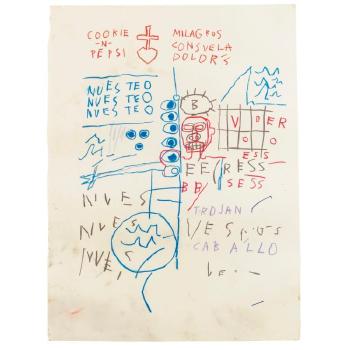 COOKIE
-N-
PEPSI
MILAGROS
CONSUELA
DOLORS
NUESTEO
NUESTEO
NUESTEO
B
V ER
ESS
EE RESS
BB SESS
NVES
NVES
NVES
TROJAN
VESPOS
CABALLO
Ve